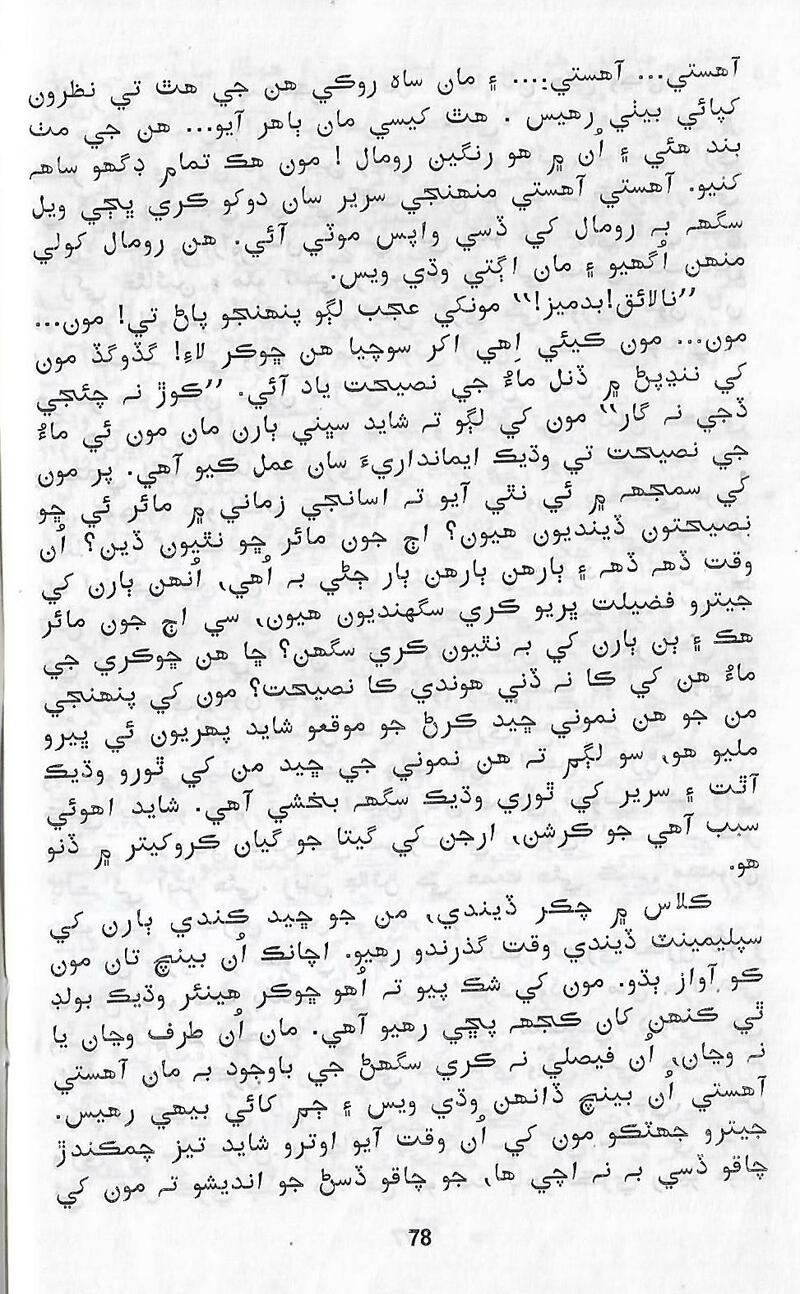 آهستي... آهستي:.... ۽ مان ساه روڪي هن جي هٿ تي نظرون
کپائي بيٺي رهيس . هٿ کيسي مان ٻاهر آيو... هن جي مٺ
بند هئي ۽ اُن ۾ هو رنگين رومال ! مون هڪ تمام ڊگهو ساهه
کنيو. آهستي آهستي منهنجي سرير سان دوکو ڪري ڀڄي ويل
سگهه به رومال کي ڏسي واپس موٽي آئي. هن رومال کولي
منهن اُگهيو ۽ مان اڳتي وڌي ويس.
”نالائق!بدميز!“ مونکي عجب لڳو پنهنجو پاڻ تي! مون...
مون... مون ڪيئي اِهي اکر سوچيا هن ڇوڪر لاءِ! گڏوگڏ مون
کي ننڍپڻ ۾ ڏنل ماءُ جي نصيحت ياد آئي. ”ڪوڙ نہ چئجي
ڏجي نہ گار“ مون کي لڳو تہ شايد سڀني ٻارن مان مون ئي ماءُ
جي نصيحت تي وڌيڪ ايمانداريءَ سان عمل ڪيو آهي. پر مون
کي سمجهہ ۾ ئي نٿي آيو تہ اسانجي زماني ۾ مائر ئي ڇو
نصيحتون ڏينديون هيون؟ اڄ جون مائر ڇو نٿيون ڏين؟ اُن
وقت ڏهہ ڏهہ ۽ ٻارهن ٻارهن ٻار ڄڻي بہ اُهي، اُنهن ٻارن کي
جيترو فضيلت ڀريو ڪري سگهنديون هيون، سي اڄ جون مائر
هڪ ۽ ٻن ٻارن کي بہ نٿيون ڪري سگهن؟ ڇا هن ڇوڪري جي
ماءُ هن کي ڪا نہ ڏني هوندي ڪا نصيحت؟ مون کي پنهنجي
من جو هن نموني ڇيد ڪرڻ جو موقعو شايد پهريون ئي ڀيرو
مليو هو، سو لڳم تہ هن نموني جي ڇيد من کي ٿورو وڌيڪ
آٿت ۽ سرير کي ٿوري وڌيڪ سگهہ بخشي آهي. شايد اهوئي
سبب آهي جو ڪرشن، ارجن کي گيتا جو گيان ڪروکيتر ۾ ڏنو
هو.
ڪلاس ۾ چڪر ڏيندي، من جو ڇيد ڪندي ٻارن کي
سپليمينٽ ڏيندي وقت گذرندو رهيو. اچانڪ اُن بينچ تان مون
کو آواز ٻڌو. مون کي شڪ پيو تہ اُهو ڇوڪر هينئر وڌيڪ بولڊ
ٿي ڪنهن کان ڪجهہ پڇي رهيو آهي. مان اُن طرف وڃان يا
نہ وڃان، اُن فيصلي نہ ڪري سگهڻ جي باوجود بہ مان آهستي
آهستي اُن بينچ ڏانهن وڌي ويس ۽ جم کائي بيهي رهيس.
جيترو جهٽڪو مون کي اُن وقت آيو اوترو شايد تيز چمڪندڙ
چاقو ڏسي بہ نہ اچي ها، جو چاقو ڏسڻ جو انديشو تہ مون کي
78